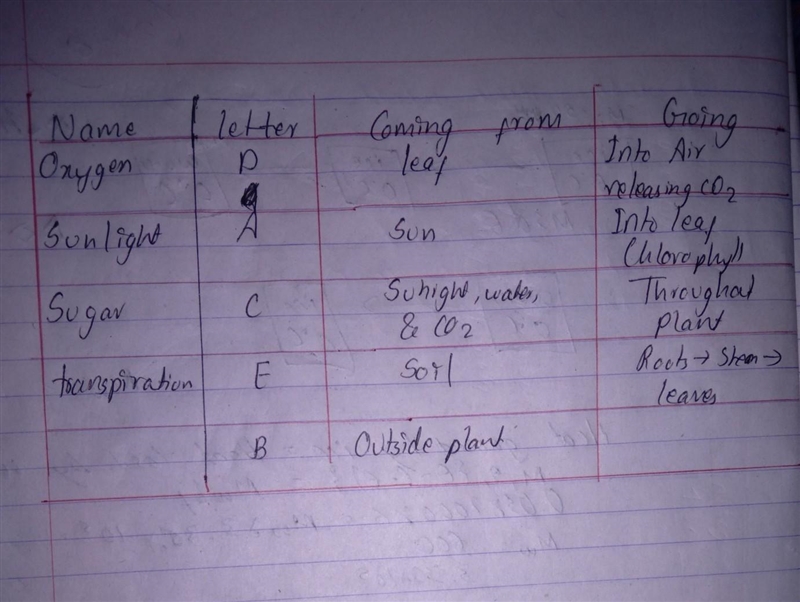 Name letter Coming from Going
Oxygen D leaf Into Air
releasing CO2
Sunlight A Sun Into leaf
Chlorophyll
Sugar C Sunlight, water, Throughout
& CO2 plant
transpiration E Soil Roots → Stem →
leaves
B Outside plant